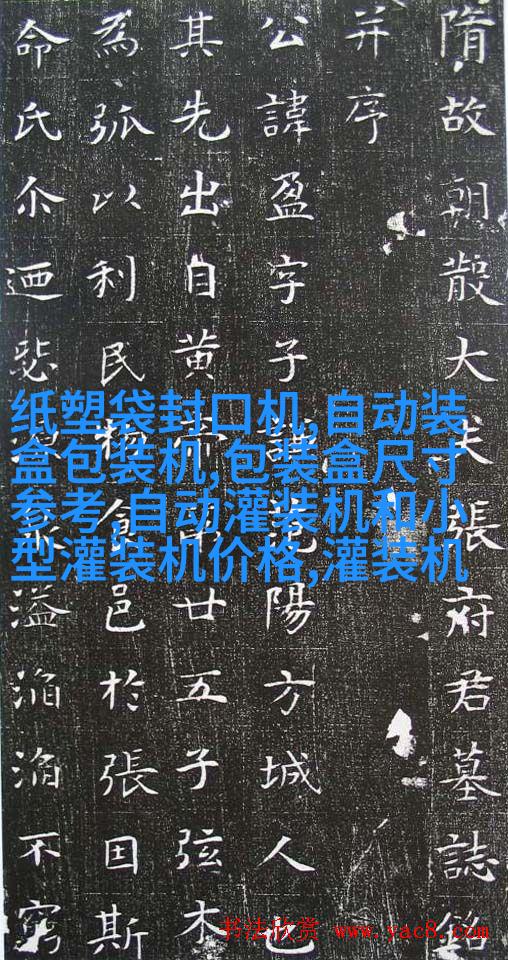 隋故朝散大夫張府君墓誌銘
并序
公諱盈字子謙范陽方城人也
其先出自黃帝第廿五子弦木
為弧以利民食邑於張因斯
命氏尒迺溢滔滔不窮
纸塑袋封口机,自动装
盒包装机,包装盒尺寸
参考,自动灌装机和小
型灌装机价格,灌装机
书法欣赏 www.yac8.com